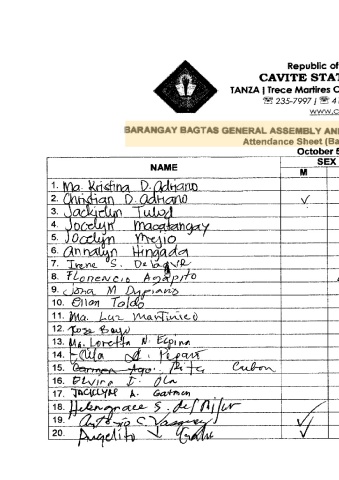 Republic of
CAVITE STA
TANZA | Trece Martires C
☏ 235-7997 | ☏ 4
www.c
BARANGAY BAGTAS GENERAL ASSEMBLY AN
Attendance Sheet (Ba
October 5
NAME SEX
M
1. Ma. Kristina D. Adriano
2. Christian D. Adriano ✓
3. Jackielyn Tulod
4. Jocelyn Macatangay
5. Jocelyn Mejio
6. Annalyn Hingada
7. Irene S.
8. Florencio Agapito
9. Jona M
10. Ellan Toldo
11. Ma. Luz Martinico
12. Rose
13. Ma. Loretta N. Espina
14.
15. Rita Cubon
16. Elvira I. Ola
17. Jacklyne A.
18. Helengrace S. del Pilar
19. Antonio C. Vasquez ✓
20. Angelito ✓